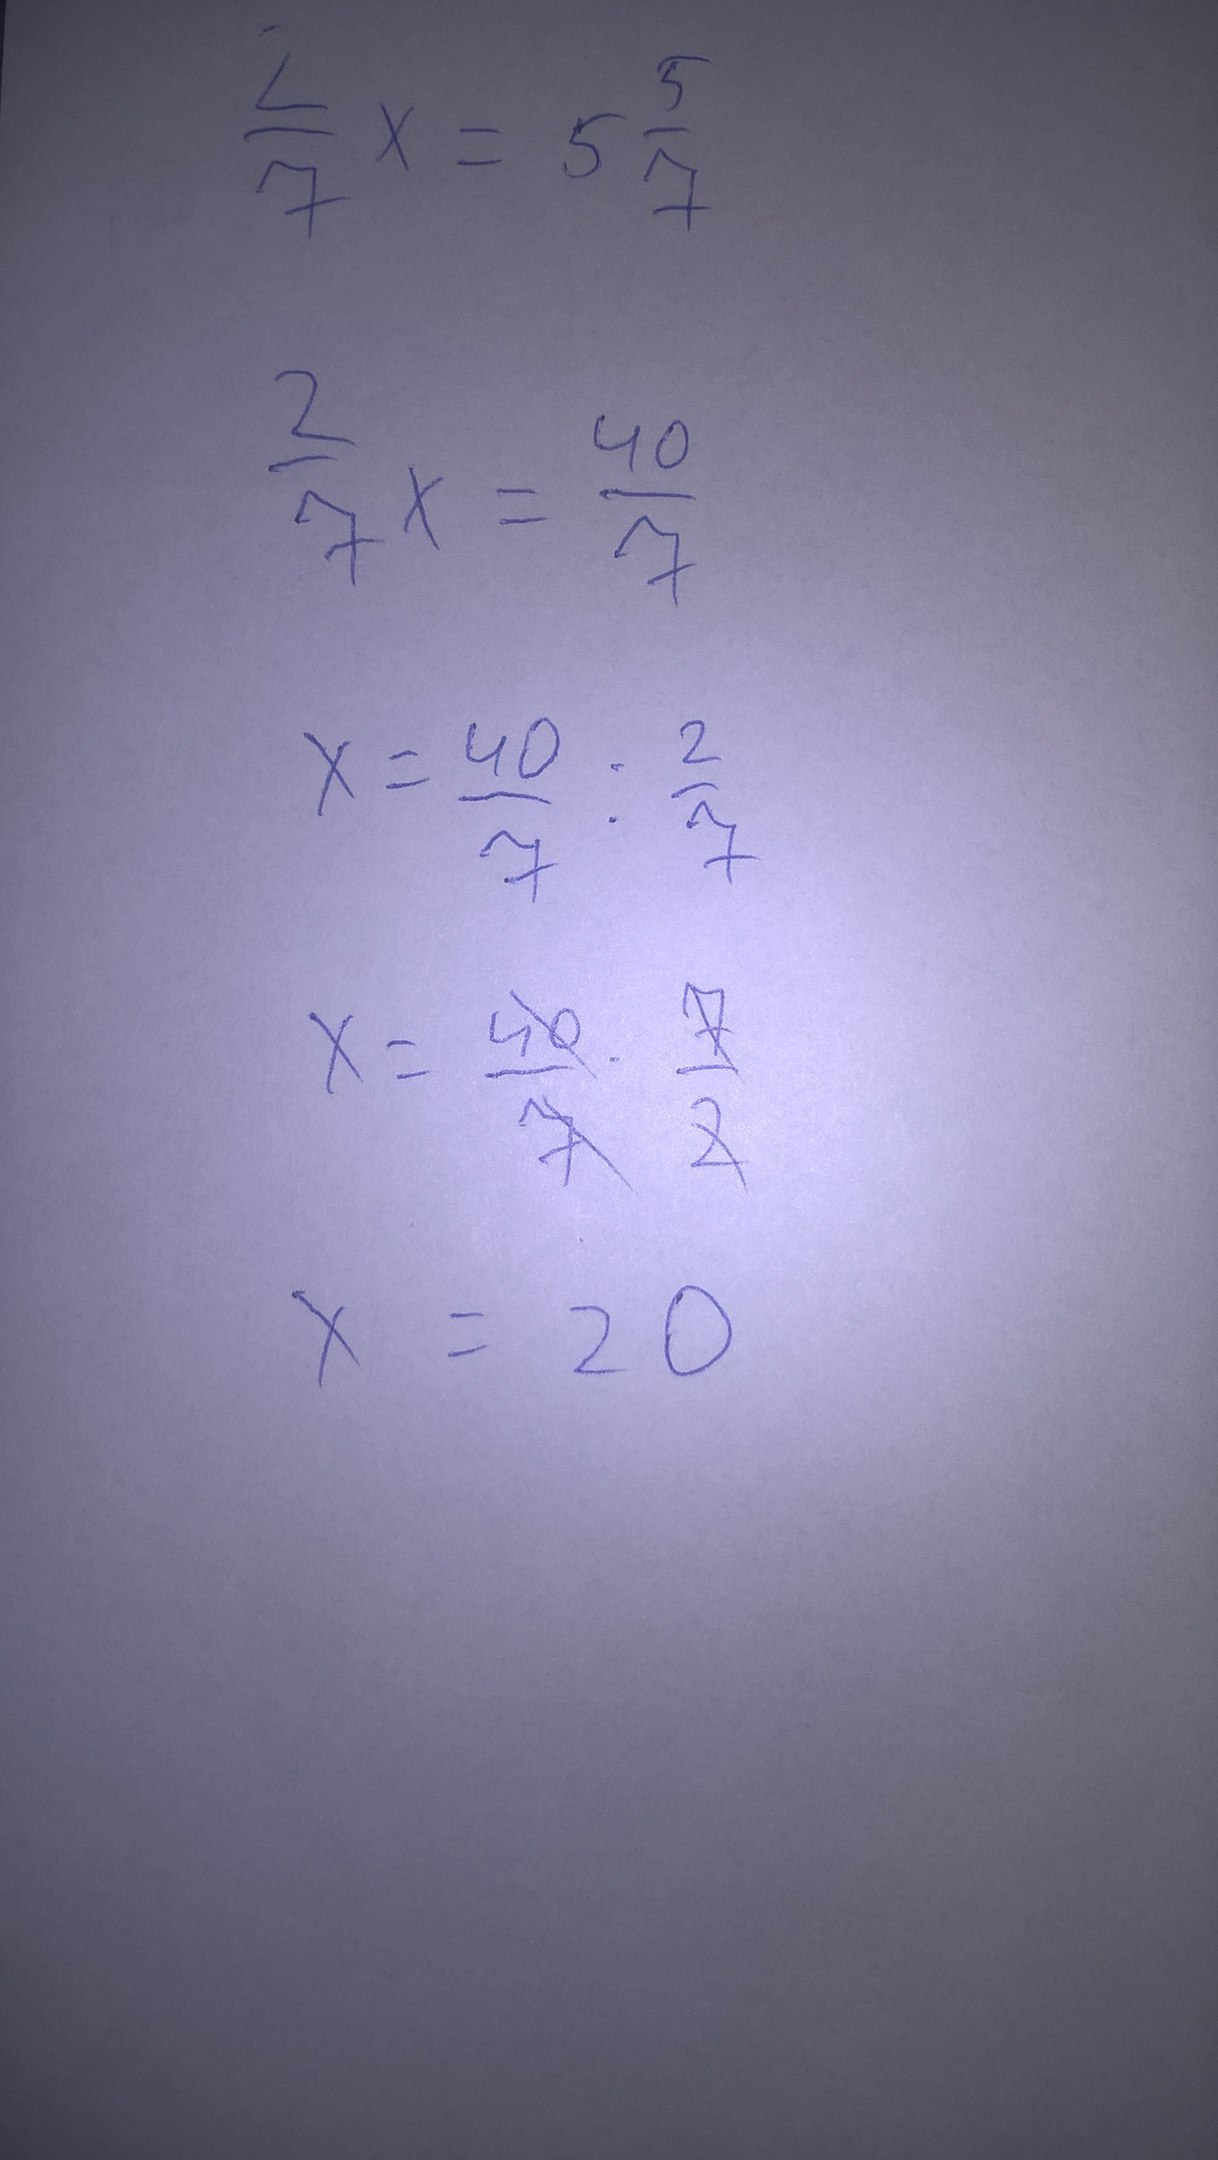 2/7 x = 5 5/7
2/7 x = 40/7
x = 40/7 : 2/7
x = 40/7 · 7/2
x = 20